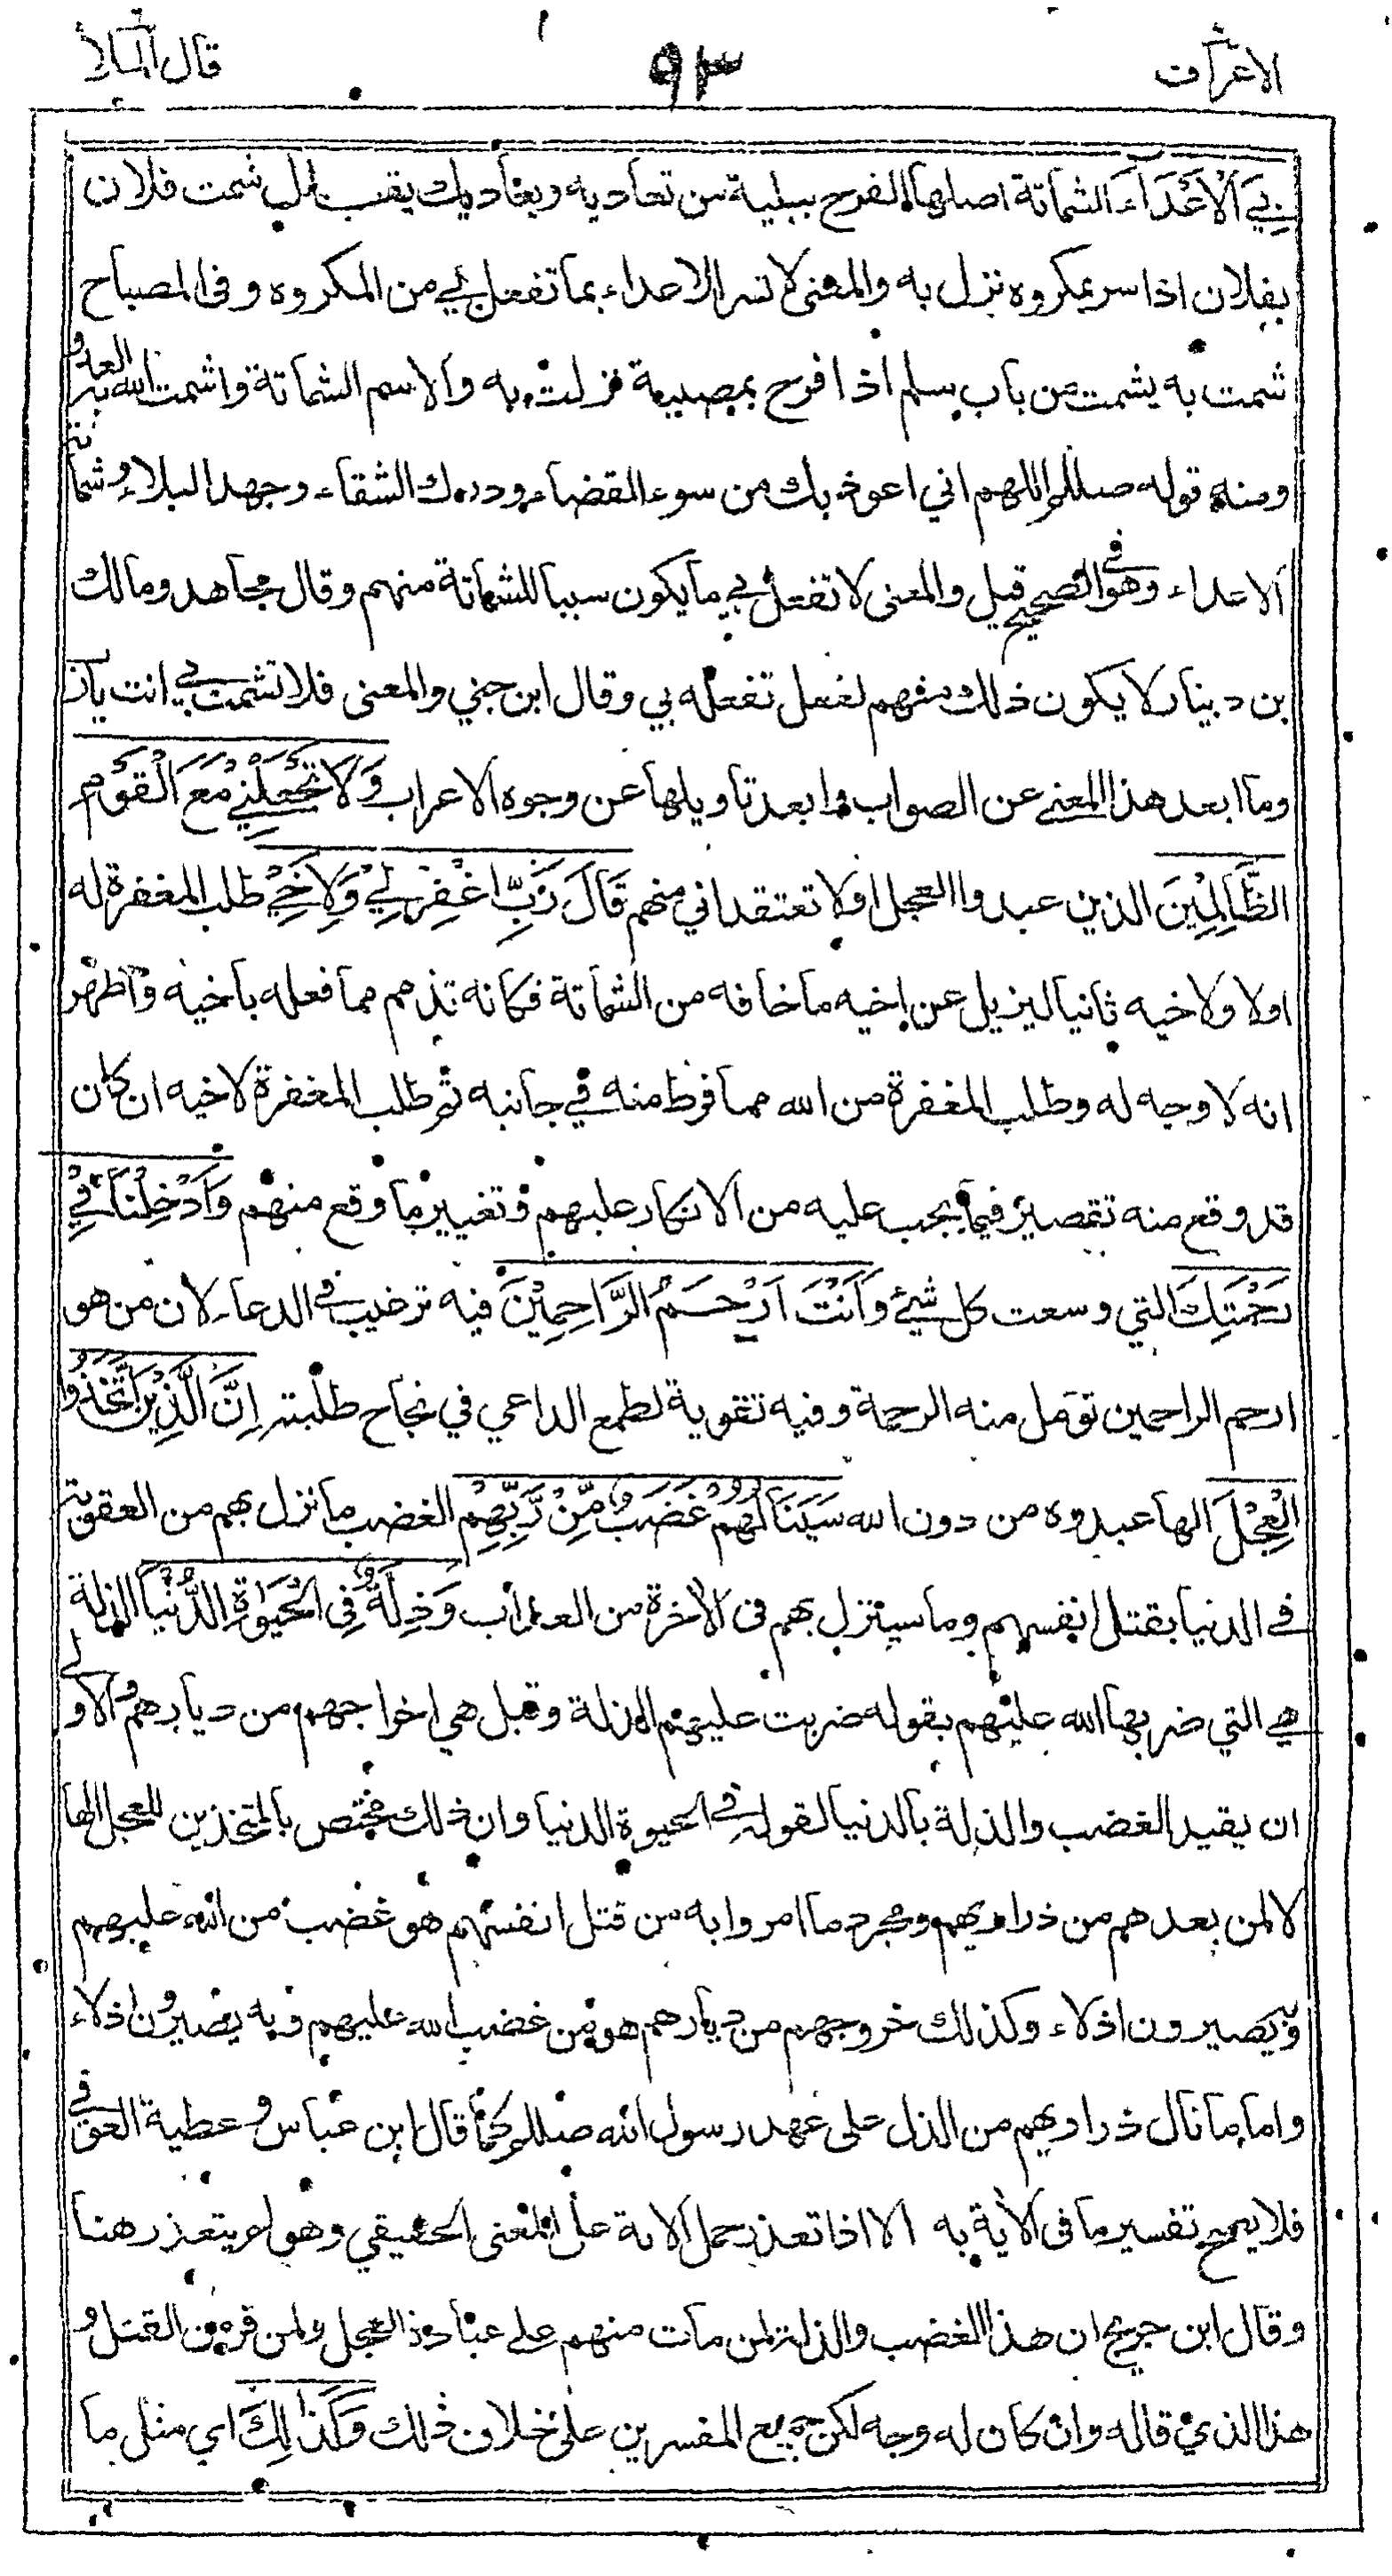 الاعراف ٩٣ قال الملأ
بِيَ الْاَعْدَاءَ الشماتة اصلها الفرح ببلية من تعاديه ويعاديك يقال شمت فلان
بفلان اذا سر بمكروه نزل به والمعنى لا تسر الاعداء بما تفعل بي من المكروه وفى المصباح
شمت به يشمت من باب سلم اذا فرح بمصيبة نزلت به والاسم الشماتة واشمت الله به العدو
ومنه قوله صللم اللهم اني اعوذ بك من سوء القضاء ودرك الشقاء وجهد البلاء وشماتة
الاعداء وهو في الصحيح قيل والمعنى لا تفعل بي ما يكون سببا للشماتة منهم وقال مجاهد ومالك
بن دينار لا يكون ذلك منهم لفعل تفعله بي وقال ابن جني والمعنى فلا تشمت بي انت يارب
وما ابعد هذا المعنى عن الصواب وابعد تاويلها عن وجوه الاعراب وَلَا تَجْعَلْنِيْ مَعَ الْقَوْمِ
الظَّالِمِيْنَ الذين عبدوا العجل اولا تعتقد اني منهم قَالَ رَبِّ اغْفِرْ لِيْ وَلِاَخِيْ طلب المغفرة له
اولا ولاخيه ثانيا ليزيل عن اخيه ما خافه من الشماتة فكانه تذمم مما فعله باخيه واظهر
انه لا وجه له وطلب المغفرة من الله مما فرط منه في جانبه ثم طلب المغفرة لاخيه ان كان
قد وقع منه تقصير فيما يجب عليه من الانكار عليهم وتغيير ما وقع منهم وَاَدْخِلْنَا فِيْ
رَحْمَتِكَ التي وسعت كل شيئ وَاَنْتَ اَرْحَمُ الرَّاحِمِيْنَ فيه ترغيب في الدعاء لان من هو
ارحم الراحمين تؤمل منه الرحمة وفيه تقوية لطمع الداعي في نجاح طلبته اِنَّ الَّذِيْنَ اتَّخَذُوا
الْعِجْلَ الها عبدوه من دون الله سَيَنَالُهُمْ غَضَبٌ مِّنْ رَّبِّهِمْ الغضب ما نزل بهم من العقوبة
في الدنيا بقتل انفسهم وما سينزل بهم فى الاخرة من العذاب وَذِلَّةٌ فِى الْحَيٰوةِ الدُّنْيَا الذلة
هي التي ضربها الله عليهم بقوله ضربت عليهم الذلة وقيل هي اخراجهم من ديارهم والاولى
ان يقيد الغضب والذلة بالدنيا لقوله في الحيوة الدنيا وان ذلك مختص بالمتخذين للعجل الها
لا لمن بعدهم من ذراريهم ومجرد ما امروا به من قتل انفسهم هو غضب من الله عليهم
وبه يصيرون اذلاء وكذلك خروجهم من ديارهم هو من غضب الله عليهم وبه يصيرون اذلاء
واما ما نال ذراريهم من الذل على عهد رسول الله صللم كما قال ابن عباس وعطية العوفي
فلا يصح تفسير ما فى الاية به الا اذا تعذر حمل الاية على المعنى الحقيقي وهو لم يتعذر هنا
وقال ابن جريج ان هذا الغضب والذلة لمن مات منهم على عبادة العجل ولمن فر من القتل و
هذا الذي قاله وان كان له وجه لكن جميع المفسرين على خلاف ذلك وَكَذٰلِكَ اي مثل ما